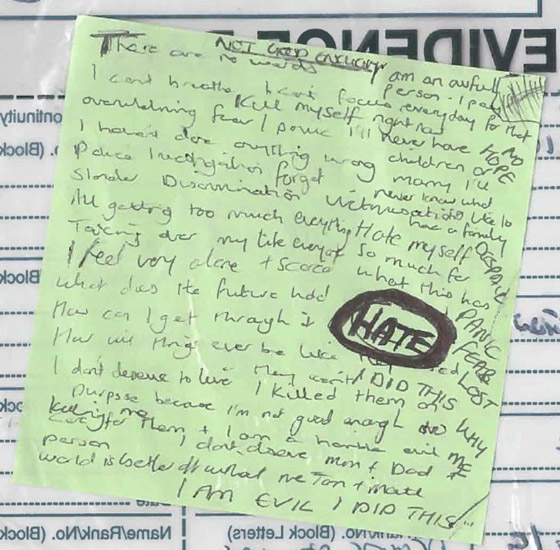 EVIDENCE
NOT GOOD ENOUGH
There are no words
I am an awful person - I pay
I cant breathe I cant focus everyday for that
Kill myself right now
overwhelming fear / panic I'll never have
NO HOPE
I havent done anything wrong
children or marry I'll
Police Investigation forget
never know what
Slander Discrimination Victimisation
its like to have a family
All getting too much everything
Hate myself
DESPAIR
Taking over my life everyday
so much for what this has
I feel very alone + scared
PANIC
what does the future hold
FEAR
How can I get through it
HATE
LOST
How will things ever be like
I DID THIS
WHY ME
I dont deserve to live
I Killed them on
purpose because I'm not good enough
to care for them + I am a horrible evil
Killing me
person I dont deserve mum + Dad
world is better off without me
I AM EVIL I DID THIS
ontinuity
(Block
No. (Block
(Block
Name/Rank/No.
(Block Letters)
Name/Rank/No. (Block